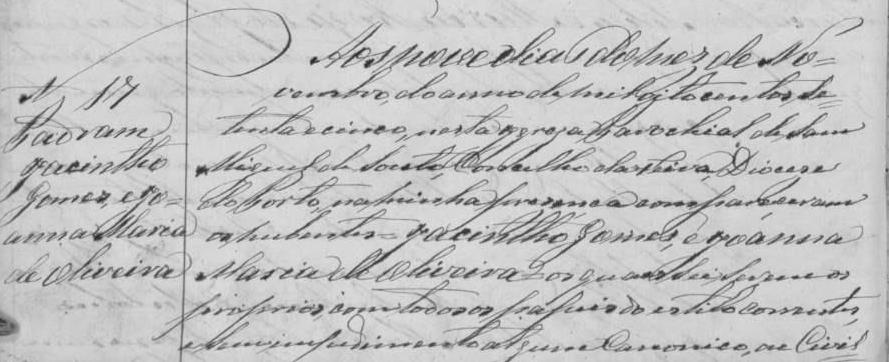 N 17
Jacintho
Gomes, e Jo-
anna Maria
de Oliveira
Aos nove dias do mez de No-
vembro, do anno de mil oito centos se-
tenta e cinco, nesta egreja Parochial de Sam
Miguel de Souto, Concelho da Feira, Diocese
do Porto, na minha presença compareceram
os nubentes = Jacintho Gomes, e Joanna
Maria de Oliveira = os quaes sei serem os
proprios, com todos os papeis do estilo correntes,
e sem impedimento algum Canonico, ou Civil